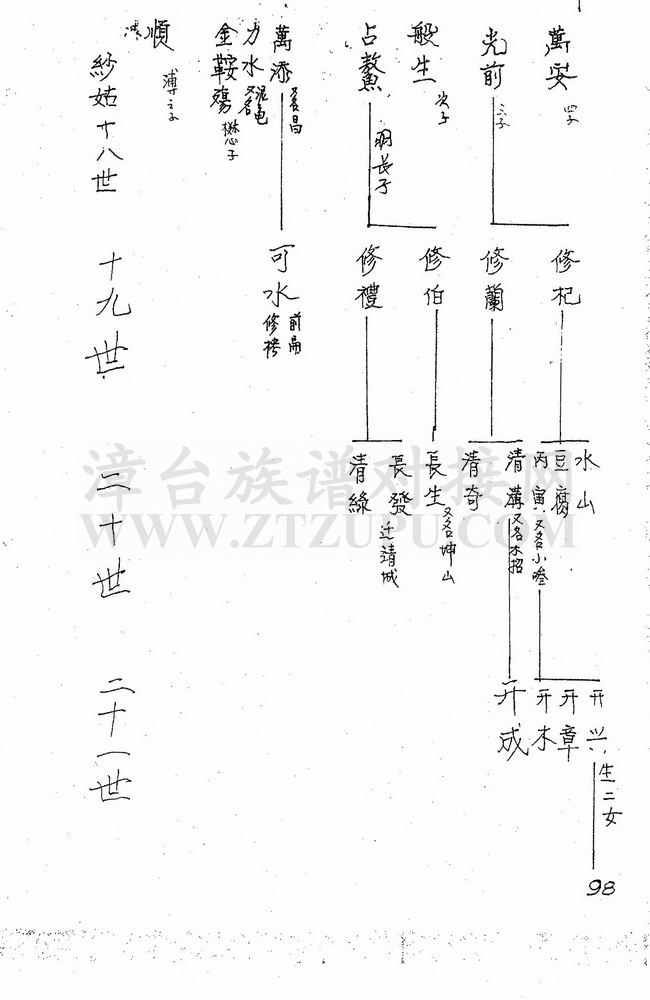 萬安 四子
光前 三子
般生 次子
占鰲 明長子
萬添 又名昌
力水 又名
金鞍殤 懋子
順
紗姑十八世
修杞
修蘭
修伯
修禮
可水
十九世
水山
豆腐
丙寅 又名小
清溝 又名木招
清奇
長生 又名坤山
長發 迁靖城
清綠
二十世
开兴 生二女
开章
开木
开成
二十一世
98
漳台族谱对接网
WWW.ZTZUPU.COM